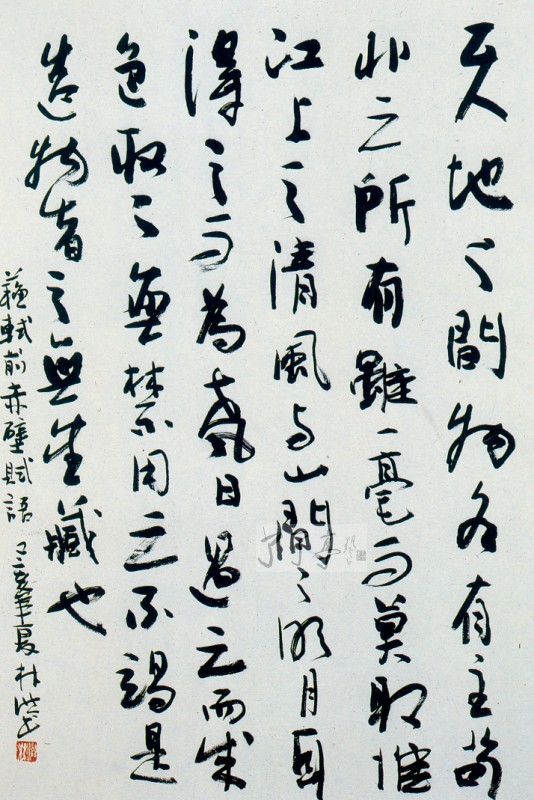 天地之間物各有主苟
非之所有雖一毫而莫取惟
江上之清風与山間之明月耳
得之而為聲目遇之而成
色取之無禁用之不竭是
造物者之無盡藏也
蘇軾前赤壁賦語
亥年夏林